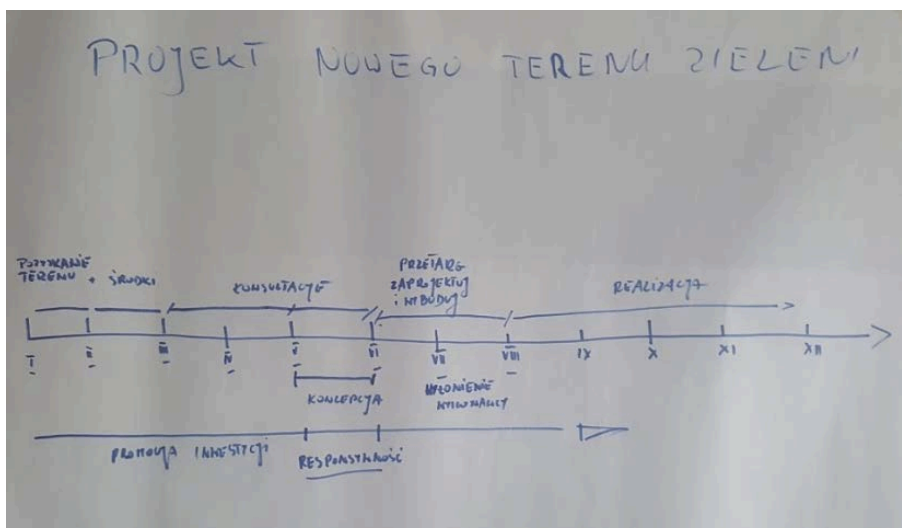 PROJEKT NOWEGO TERENU ZIELENI
POZYSKANIE
TERENU + ŚRODKI
KONSULTACJE
PRZETARG
ZAPROJEKTUJ
i WYBUDUJ
REALIZACJA
I II III IV V VI VII VIII IX X XI XII
KONCEPCJA
WYŁONIENIE
WYKONAWCY
PROMOCJA INWESTYCJI
RESPONSYWNOŚĆ